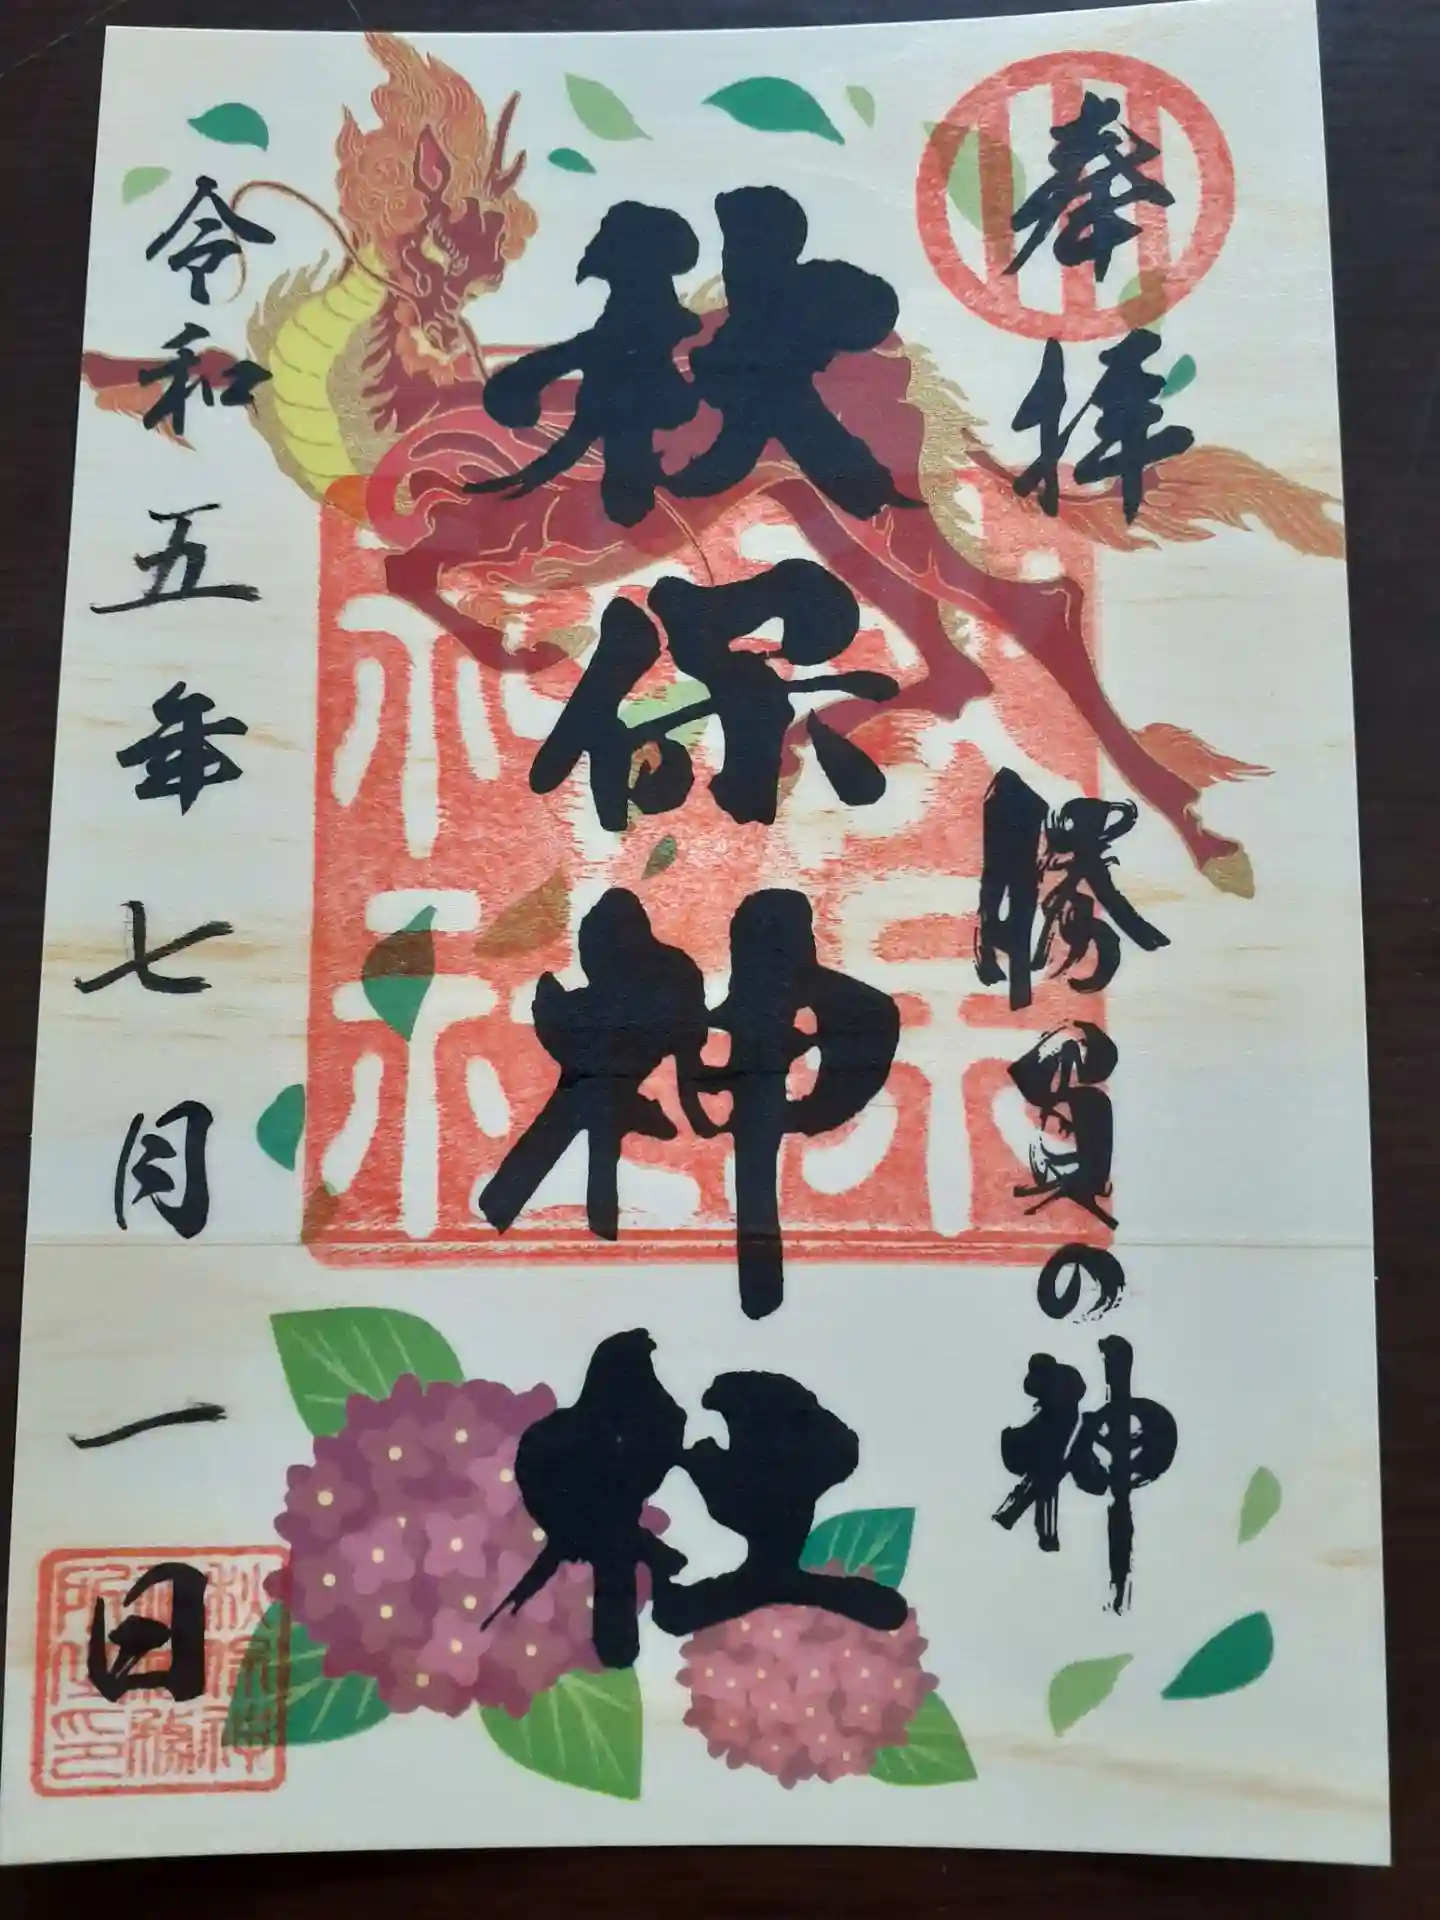 奉拝
勝負の神
秋保神社
令和五年七月一日
秋保神社
秋保神社社務所之印